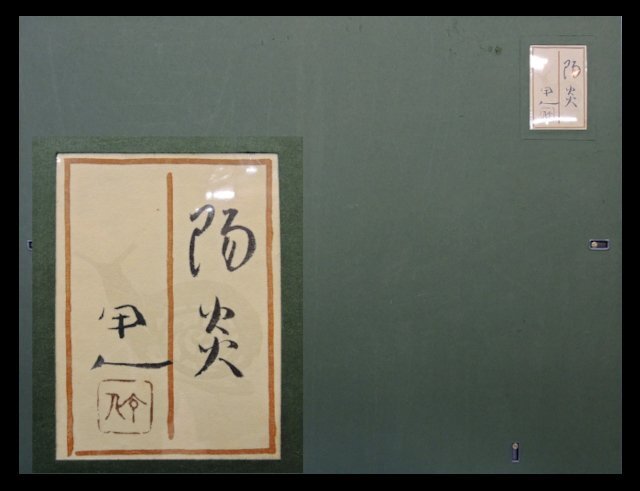 陽炎
甲一
陽炎
甲一